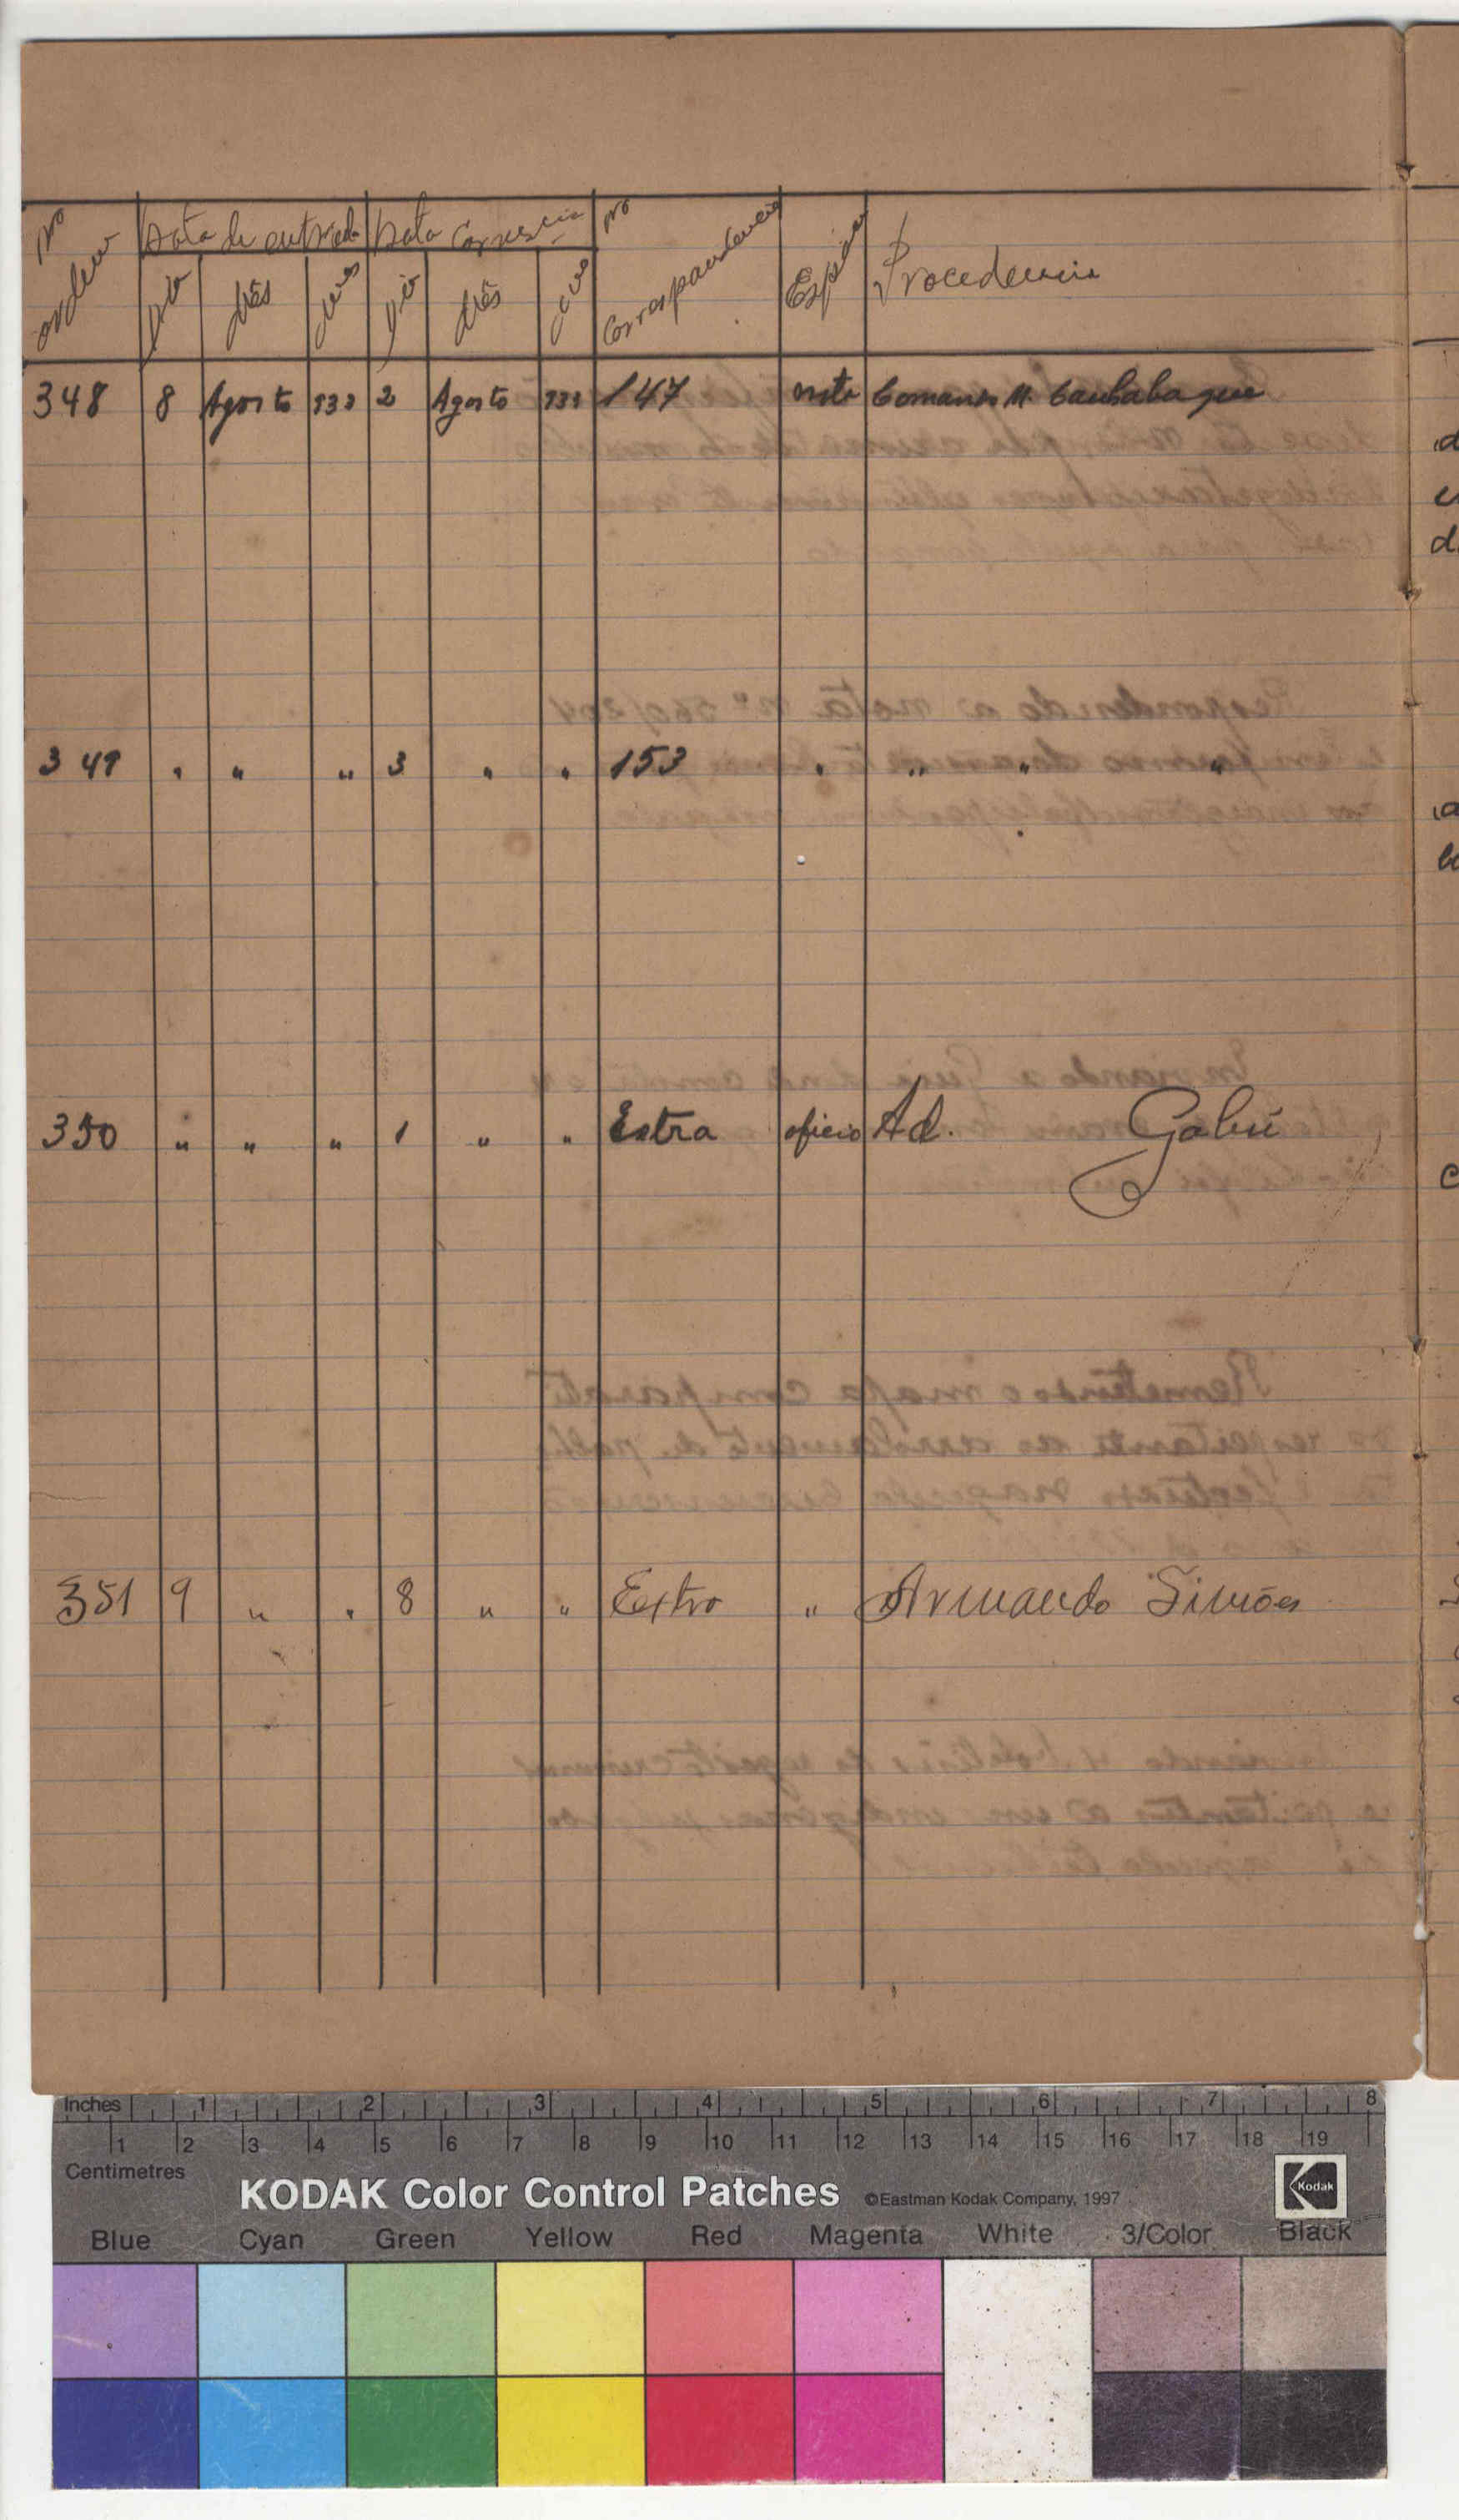 nº ordem Data de entrada Data Corresp.cia nº Correspondencia Espécie Procedencia
Dia Mês Dia Mês
348 8 Agosto 933 2 Agosto 933 147 nota Comando M.
349 " " " 3 " " 153 " " " "
350 " " " 1 " " Extra oficio Ad. Gabú
351 9 " " 8 " " Extra " Armando Simões
Inches 1 2 3 4 5 6 7 8
1 2 3 4 5 6 7 8 9 10 11 12 13 14 15 16 17 18 19
Centimetres
KODAK Color Control Patches ©Eastman Kodak Company, 1997 Kodak
Blue Cyan Green Yellow Red Magenta White 3/Color Black